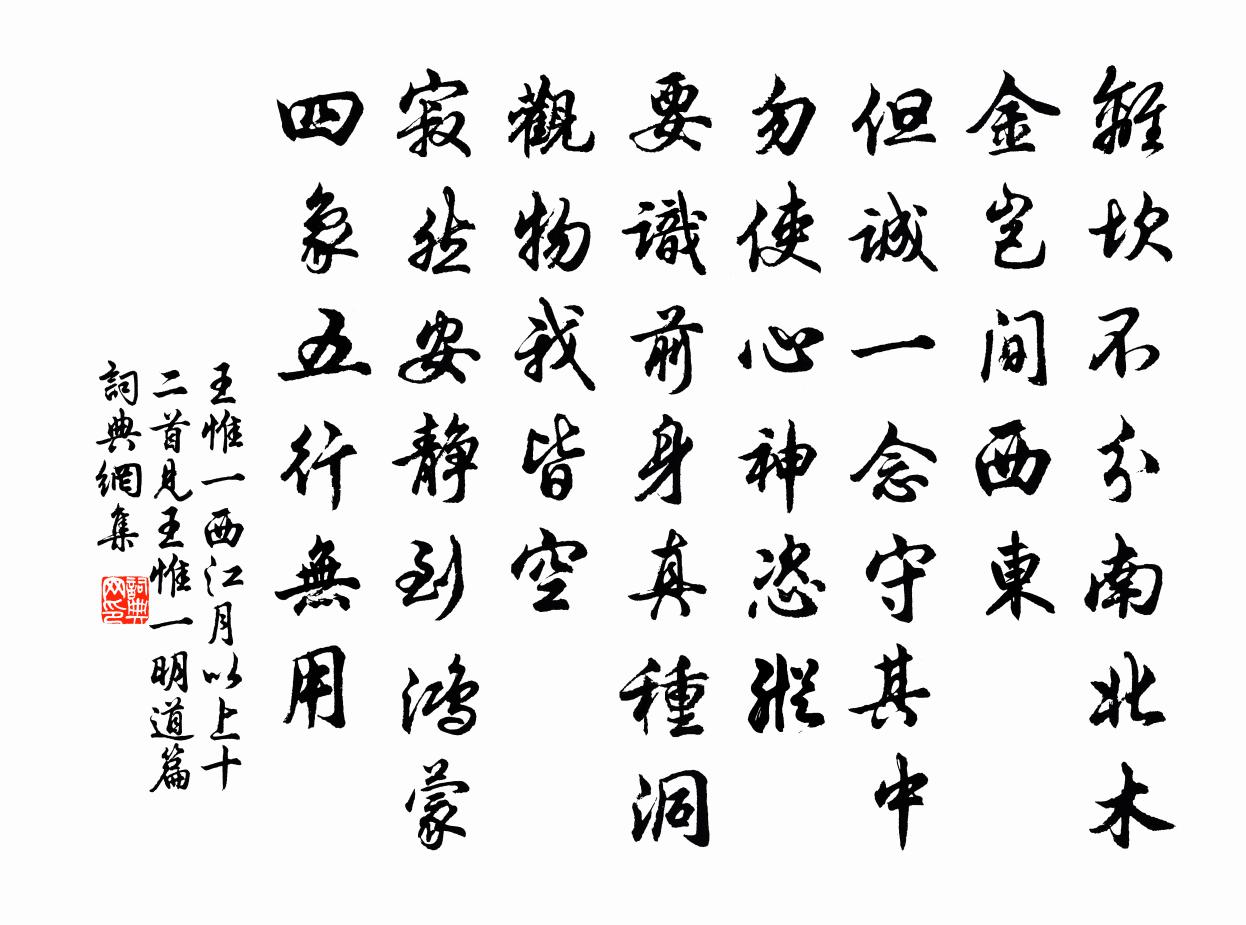 離坎不分南北木
金豈間西東
但誠一念守其中
勿使心神恣縱
要識前身真種洞
觀物我皆空
寂然安靜到鴻蒙
四象五行無用
王惟一西江月以上十
二首見王惟一明道篇
詞典網集
詞典網印